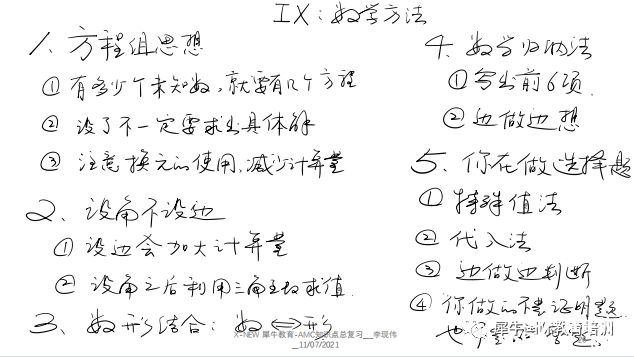 IX：数学方法
1、方程组思想
① 有多少个未知数，就要有几个方程
② 设了不一定要求出具体解
③ 注意换元的使用，减少计算量
2、设角不设边
① 设边会加大计算量
② 设角之后利用三角函数求值
3、数形结合：数⇔形
4、数学归纳法
① 写出前6项
② 边做边想
5、你在做选择题
① 特殊值法
② 代入法
③ 边做边判断
④ 你做的不是证明题
也
X-NEW 犀牛教育-AMC知识点总复习__李现伟
_11/07/2021
犀牛国际教育培训